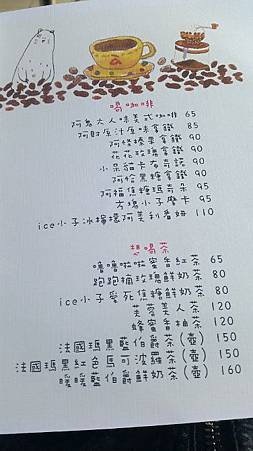 喝咖啡
阿為大人味美式咖啡 65
阿財原汁原味拿鐵 85
阿榛榛果拿鐵 90
花花玫瑰拿鐵 90
小呆貓卡布奇諾 90
阿哈黑糖拿鐵 90
阿福焦糖瑪奇朵 95
方塊小子摩卡 95
ice小子冰檸檬阿美利香妞 110
想喝茶
嚕嚕啦啦蜜香紅茶 65
跑跑摘玫瑰鮮奶茶 80
ice小子愛死焦糖鮮奶茶 80
芙蓉美人茶 120
蜂蜜香柚茶 120
法國瑪黑藍伯爵茶(壺) 150
法國瑪黑紅色馬可波羅茶(壺) 150
暖暖藍伯爵鮮奶茶(壺) 160